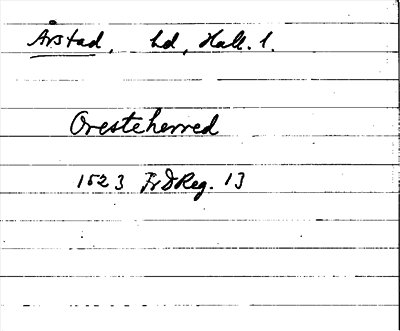 Årstad, hd, Hall. l.
Oresteherred
1523 FrDReg. 13